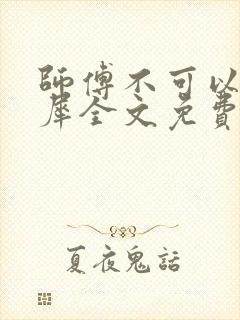 師傅不可以
犀全文免費
夏夜鬼話